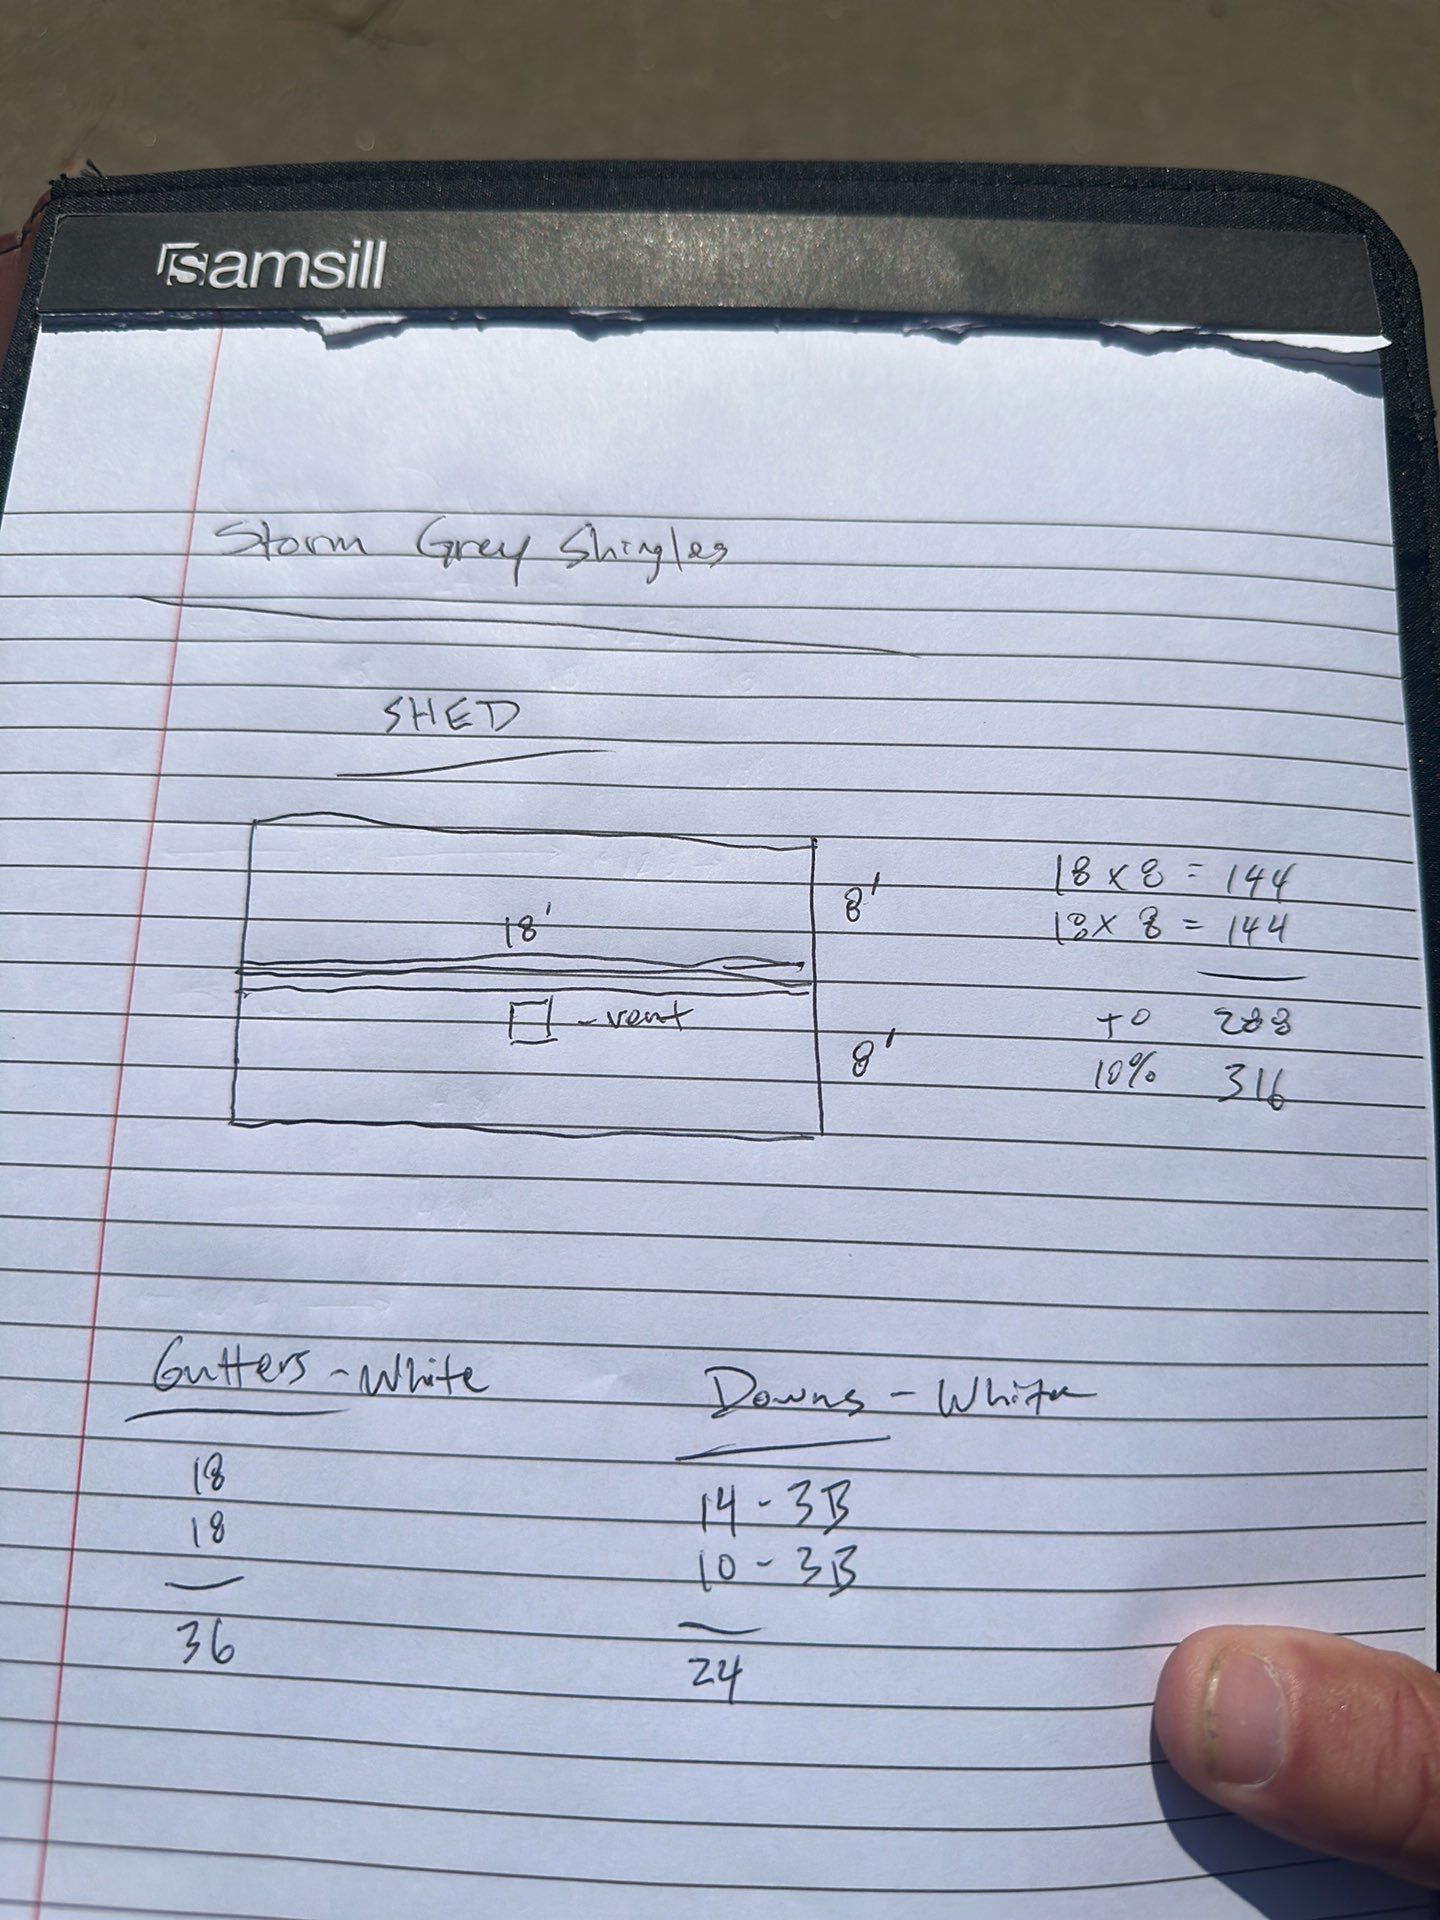 samsill
Storm Grey Shingles
SHED
8'
18 x 8 = 144
18'
18 x 8 = 144
- vent
8'
+0 288
10% 316
Gutters - White
18
18
36
Downs - White
14 - 3B
10 - 3B
24